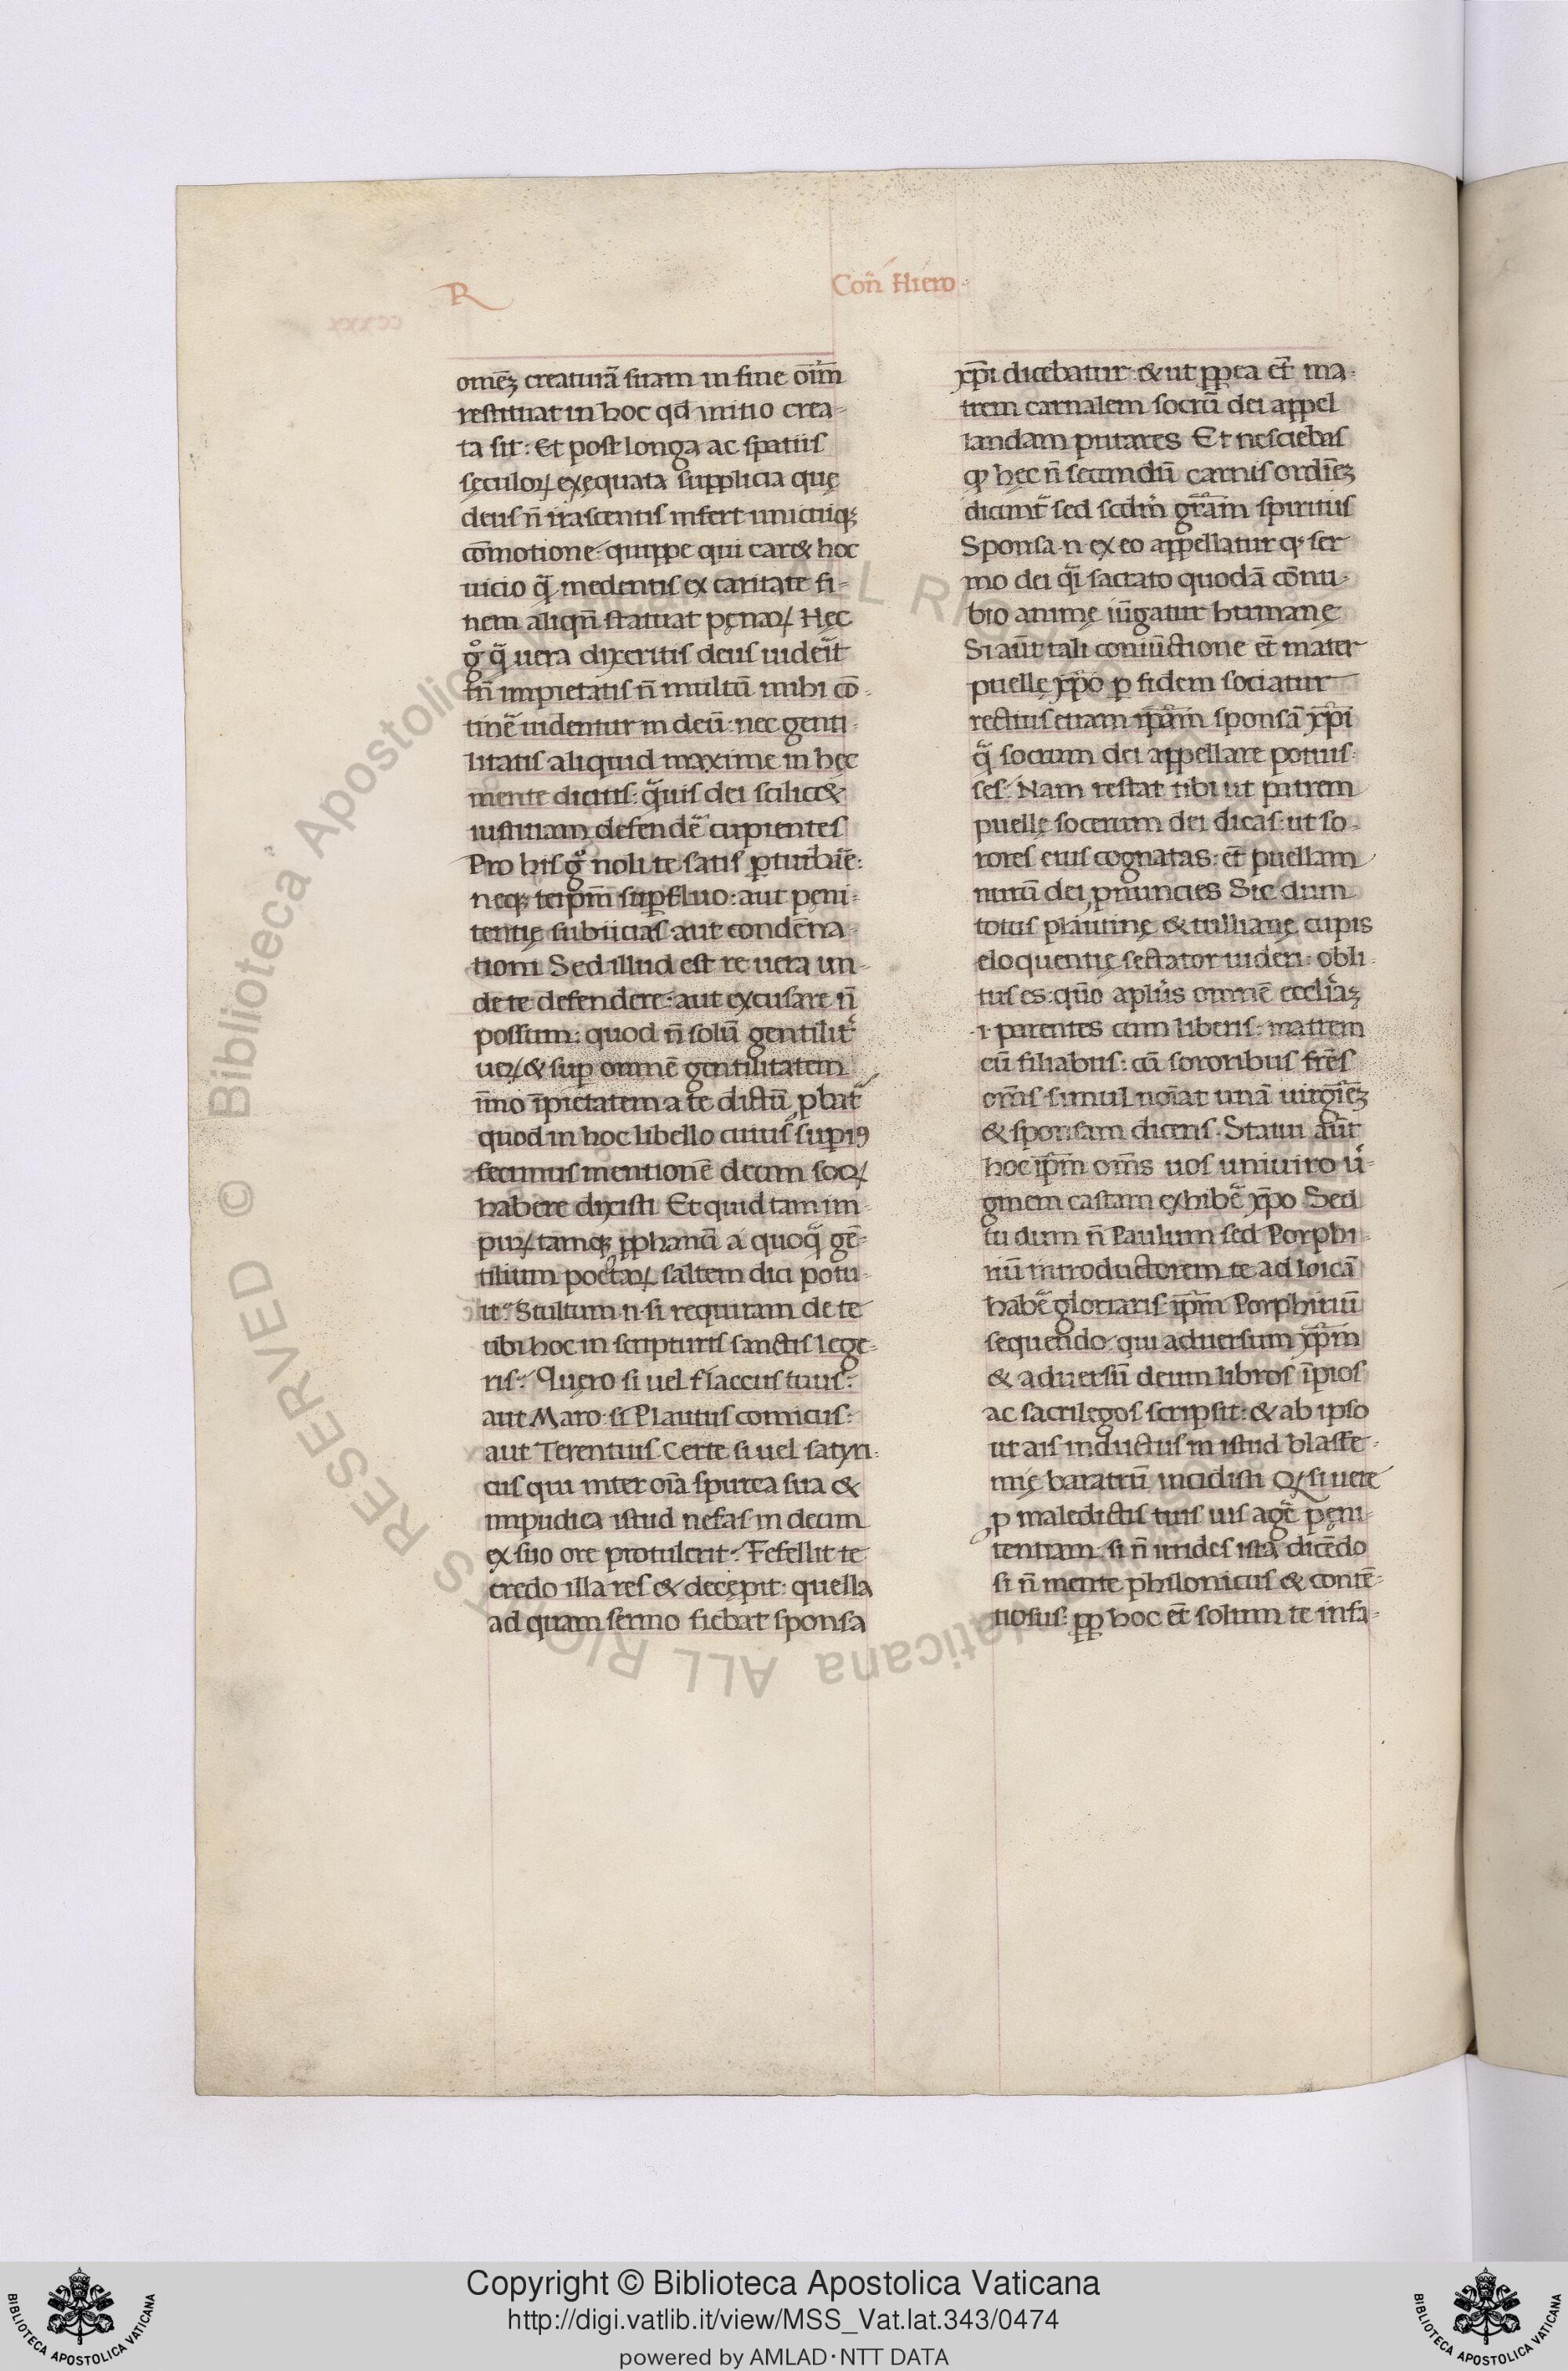 R
Coñ Hiero
omẽꝫ creaturã suam in fine oĩm
restituat in hoc qd initio crea-
ta sit: Et post longa ac spatiis
sęculoꝝ exęquata supplicia quę
deus ñ irascentis infert unicuiqꝫ
cõmotione quippe qui car& hoc
uicio q̃ medentis ex caritate fi-
nem aliqñ statuat pęnaꝝ Hęc
gͦ q̃ uera dixeritis deus uiderit
tñ impietatis ñ multũ mihi cõ-
tinẽ uidentur in deũ: nec genti-
litatis aliquid maxime in hęc
mente dicitis: q̃uis dei scilic&
iustitiam defendẽ cupientes
Pro his gͦ noli te satis ꝑturbaẽ:
neqꝫ teipm̃ suꝑfluo: aut pęni-
tentię subiicias aut condẽna-
tioni Sed illud est re uera un-
de te defendere: aut excusare ñ
possum: quod ñ solũ gentilitr̃
ueꝝ & suꝑ omnẽ gentilitatem
ĩmo ĩpietatem a te dictũ ꝓbat̃
quod in hoc libello cuius suꝑiꝰ
fecimus mentionẽ deum socꝝ
habere dixisti Et quid tam im-
puꝝ tamqꝫ ꝓphanũ a quoq̃ gẽ-
tilium poetaꝝ saltem dici potu-
it: Stultum .n. si requiram de te
ubi hoc in scripturis sanctis lege-
ris: Quęro si uel flaccus tuus:
aut Maro: si Plautus comicus:
aut Terentius. Certe si uel satyri-
cus qui inter oĩa spurca sua &
impudica istud nefas in deum
ex suo ore protulerit: Fefellit te
credo illa res & decępit: quella
ad quam sermo fiebat sponsa
xp̃i dicebatur: & ut ꝓpea et̃ ma-
trem carnalem socrũ dei appel
landam putares Et nesciebas
ꝙ hęc ñ secundũ carnis ordĩeꝫ
dicunt̃ sed scdm̃ gr̃am spiritus
Sponsa .n. ex eo appellatur ꝙ ser
mo dei q̃i sacrato quodã cõnu-
bio animę iũgatur humanę
Si aũt tali coniũctione et̃ mater
puellę xp̃o ꝑ fidem sociatur
rectius etiam ip̃am sponsã xp̃i
q̃ socrum dei appellare potuis-
ses: Nam restat tibi ut patrem
puellę socerum dei dicas: ut so-
rores eius cognatas: et̃ puellam
nurũ dei ꝓnuncies Sic dum
totus plautinę & tullianę cupis
eloquentię sectator uideri: obli-
tus es: quõ aplũs omnẽ ecclĩaꝫ
.i. parentes cum liberis: matrem
cũ filiabus: cũ sororibus fr̃es
om̃s simul noĩat unã uirgĩeꝫ
& sponsam dicens. Statui aũt
hoc ip̃m om̃s uos uniuiro ũ-
ginem castam exhibẽ xp̃o Sed
tu dum ñ Paulum sed Porphi-
riũ introductorem te ad loicã
habẽ gloriaris: ip̃m Porphiriũ
sequendo: qui aduersum xp̃m
& aduersũ deum libros ĩpios
ac sacrilegos scripsit: & ab ipso
ut ais inductus in istud blasfe-
mię baratrũ incidisti Qꝝ si uere
ꝓ maledictis tuis uis agẽ pęni-
tentiam si ñ irrides ista dicẽdo
si ñ mente philonicus & contẽ-
tiosus: ꝓp hoc et̃ solum te infa-
© Biblioteca Apostolica Vaticana ALL RIGHTS RESERVED
Copyright © Biblioteca Apostolica Vaticana
http://digi.vatlib.it/view/MSS_Vat.lat.343/0474
powered by AMLAD·NTT DATA
BIBLIOTECA APOSTOLICA VATICANA
BIBLIOTECA APOSTOLICA VATICANA